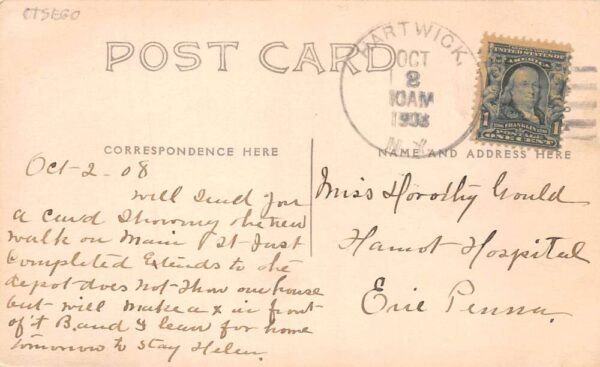 OTSEGO
POST CARD
HARTWICK,
OCT
2
10AM
1908
N.Y.
UNITED STATES OF AMERICA
FRANKLIN
1 POSTAGE 1
ONE CENT
CORRESPONDENCE HERE
NAME AND ADDRESS HERE
Oct-2-08
will send you
a card showing the new
walk on Main St-Just
Completed Extends to the
depot does not show our house
but will make a x in front
of it B. and I leav for home
tomorrow to stay Helen.
Miss Dorothy Gould
Hamot Hospital
Erie Penna.